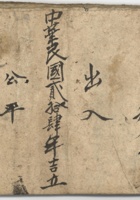 出入
中華民國貳拾肆年吉立
公平